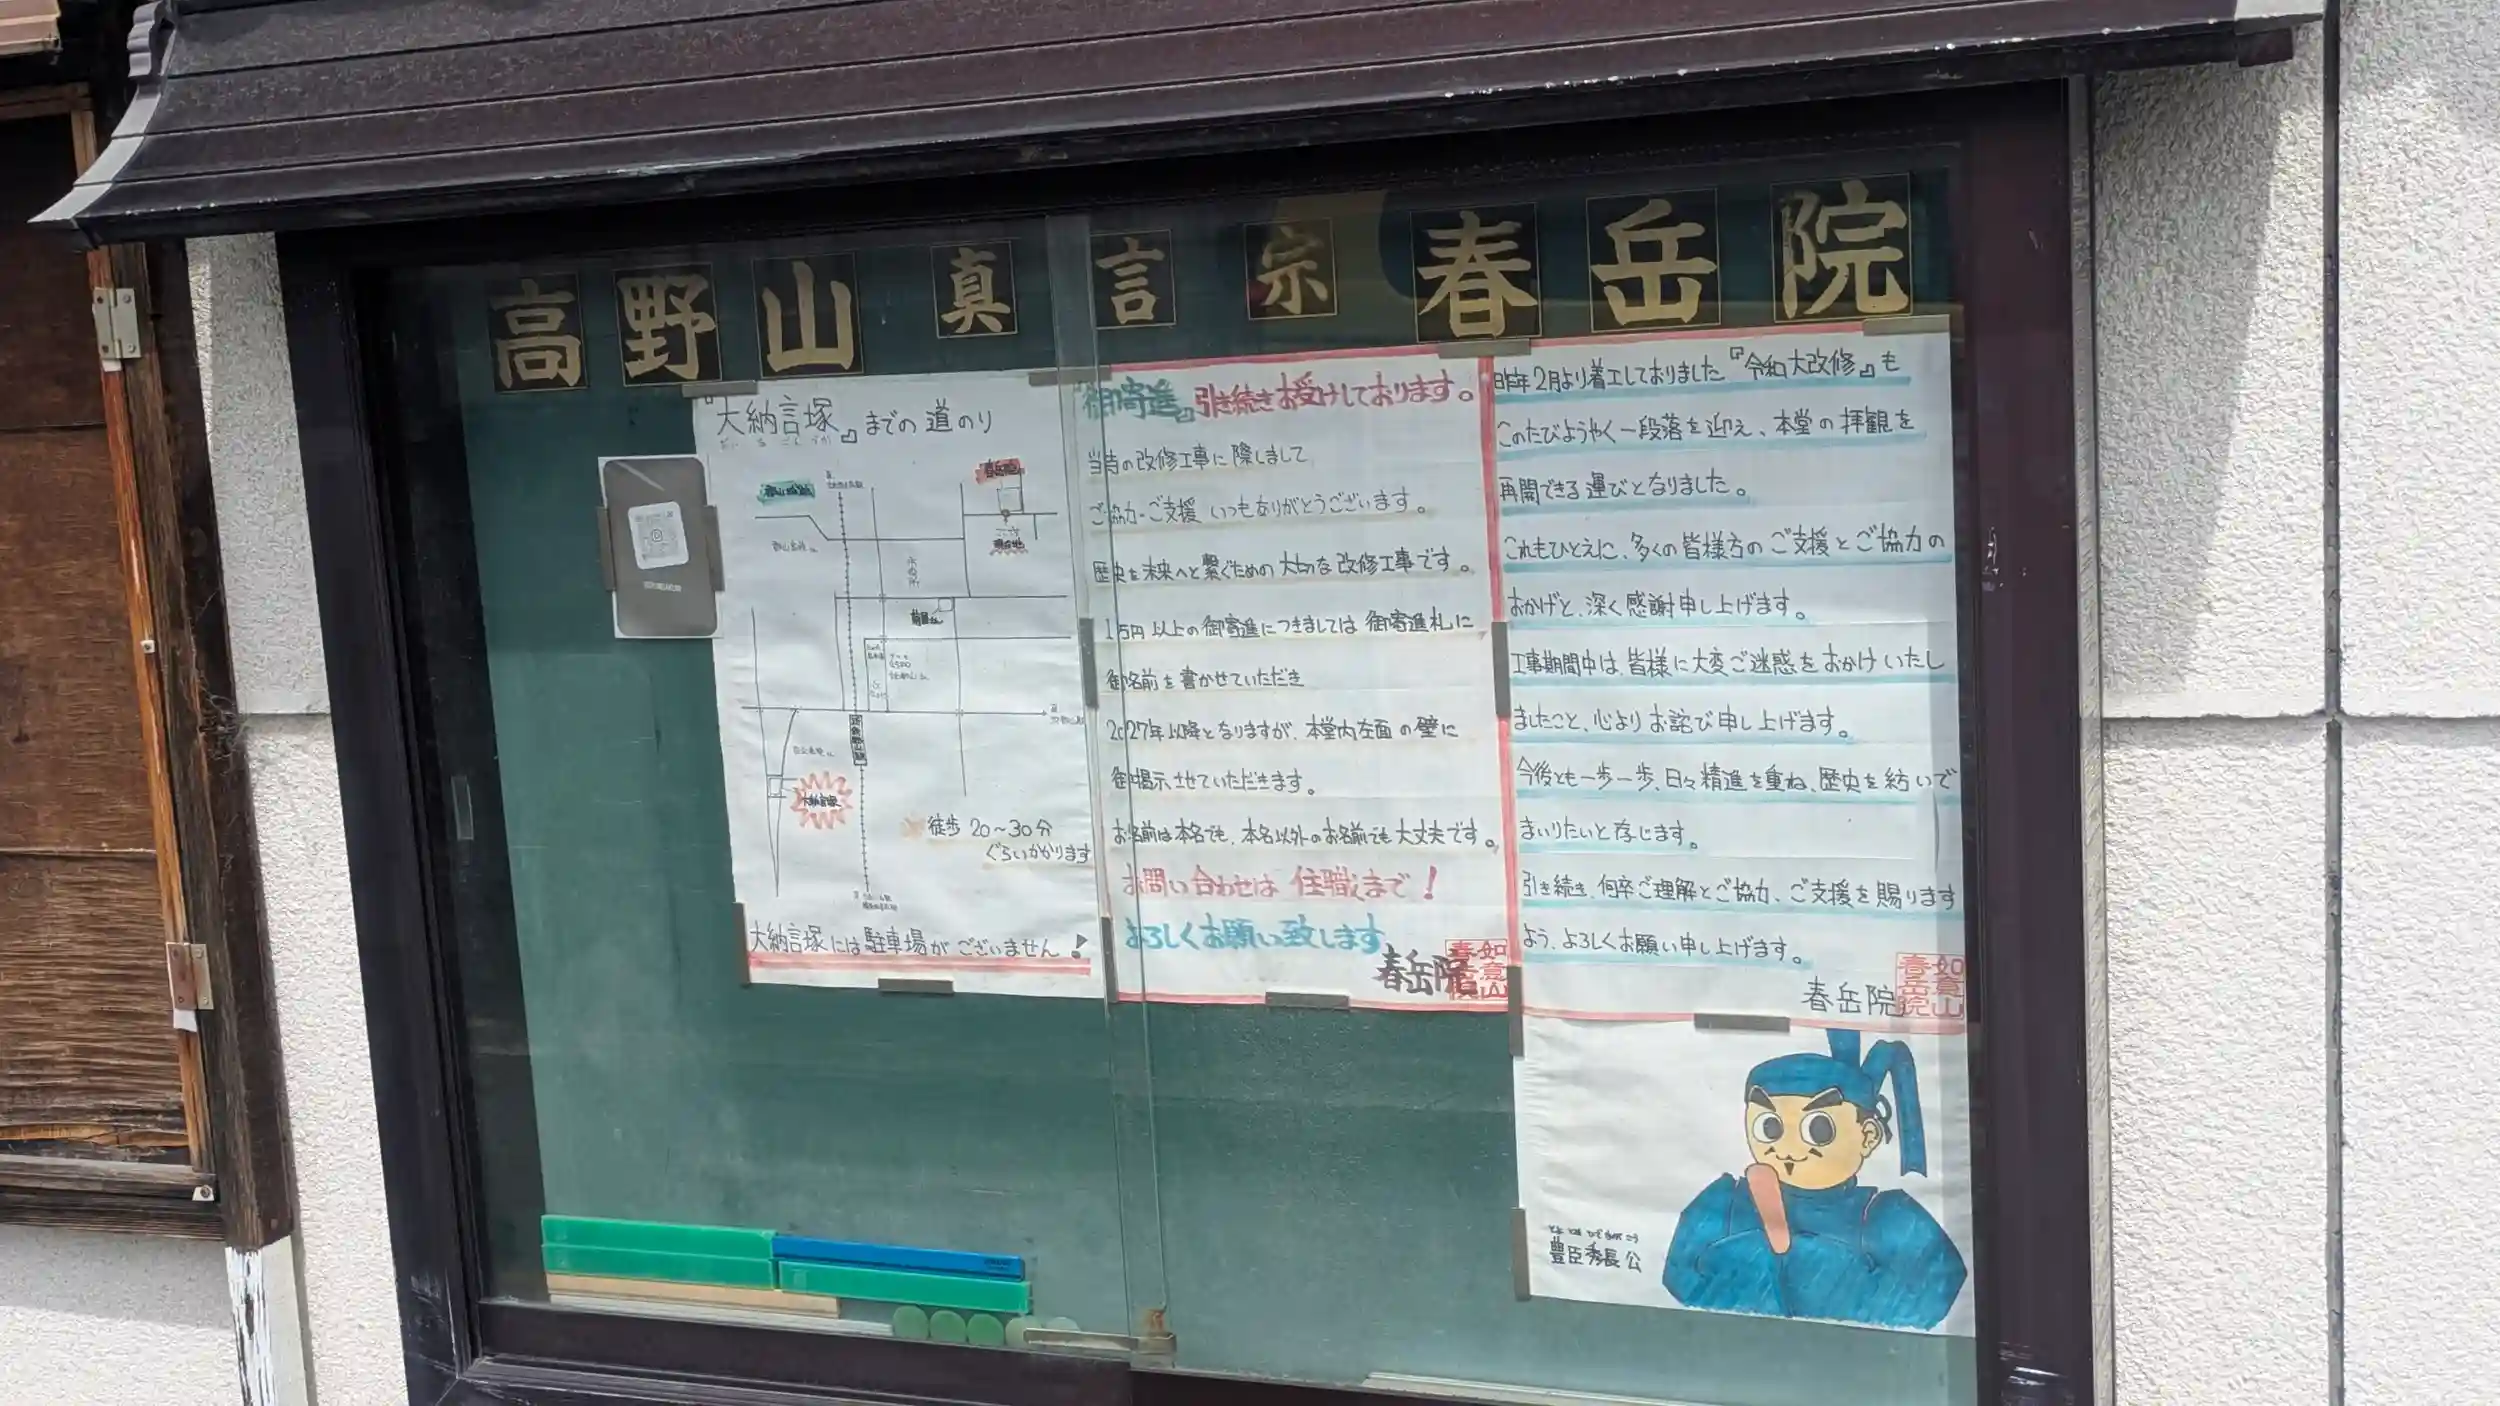 高野山 真言宗 春岳院
『大納言塚』までの道のり
だいなごんづか
春岳院
現在地
大納言塚
徒歩 20〜30分
ぐらいかかります
大納言塚には駐車場がございません!
『御寄進』引き続きお受けしております。
当寺の改修工事に際しまして
ご協力・ご支援 いつもありがとうございます。
歴史を未来へと繋ぐための大切な改修工事です。
1万円以上の御寄進につきましては御寄進札に
御名前を書かせていただき
2027年以降となりますが、本堂内左面の壁に
御掲示させていただきます。
お名前は本名でも、本名以外のお名前でも大丈夫です。
お問い合わせは 住職まで!
よろしくお願い致します
春岳院
如意山
春岳院
昨年2月より着工しておりました『令和大改修』も
このたびようやく一段落を迎え、本堂の拝観を
再開できる運びとなりました。
これもひとえに、多くの皆様方のご支援とご協力の
おかげと、深く感謝申し上げます。
工事期間中は、皆様に大変ご迷惑をおかけいたし
ましたこと、心よりお詫び申し上げます。
今後とも一歩一歩、日々精進を重ね、歴史を紡いで
まいりたいと存じます。
引き続き、何卒ご理解とご協力、ご支援を賜ります
よう、よろしくお願い申し上げます。
春岳院
如意山
春岳院
とよとみひでながこう
豊臣秀長公